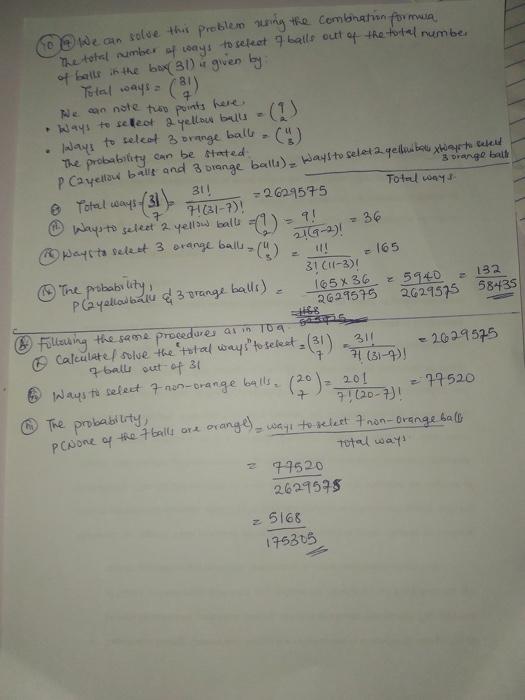 10 a We can solve this problem using the Combination formula
The total number of ways to select 7 balls out of the total number
of balls in the box (31) is given by:
Total ways = (31 7)
We can note two points here,
• Ways to select 2 yellow balls = (9 2)
• Ways to select 3 orange balls = (11 3)
The probability can be stated:
P (2 yellow balls and 3 orange balls) = Ways to select 2 yellow balls x Ways to select 3 orange balls / Total ways
i Total ways = (31 7) = 31! / 7!(31-7)! = 2629575
ii. Ways to select 2 yellow balls = (9 2) = 9! / 2!(9-2)! = 36
iii Ways to select 3 orange balls = (11 3) = 11! / 3!(11-3)! = 165
iv The probability,
P(2 yellow balls & 3 orange balls) = 165 x 36 / 2629575 = 5940 / 2629575 = 132 / 58435
b Following the same procedures as in 10a.
i. Calculate/solve the total ways to select = (31 7) = 31! / 7!(31-7)! = 2629575
7 balls out of 31
ii Ways to select 7 non-orange balls = (20 7) = 20! / 7!(20-7)! = 77520
iii The probability,
P(None of the 7 balls are orange) = ways to select 7 non-orange balls / Total ways
= 77520 / 2629575
= 5168 / 175305